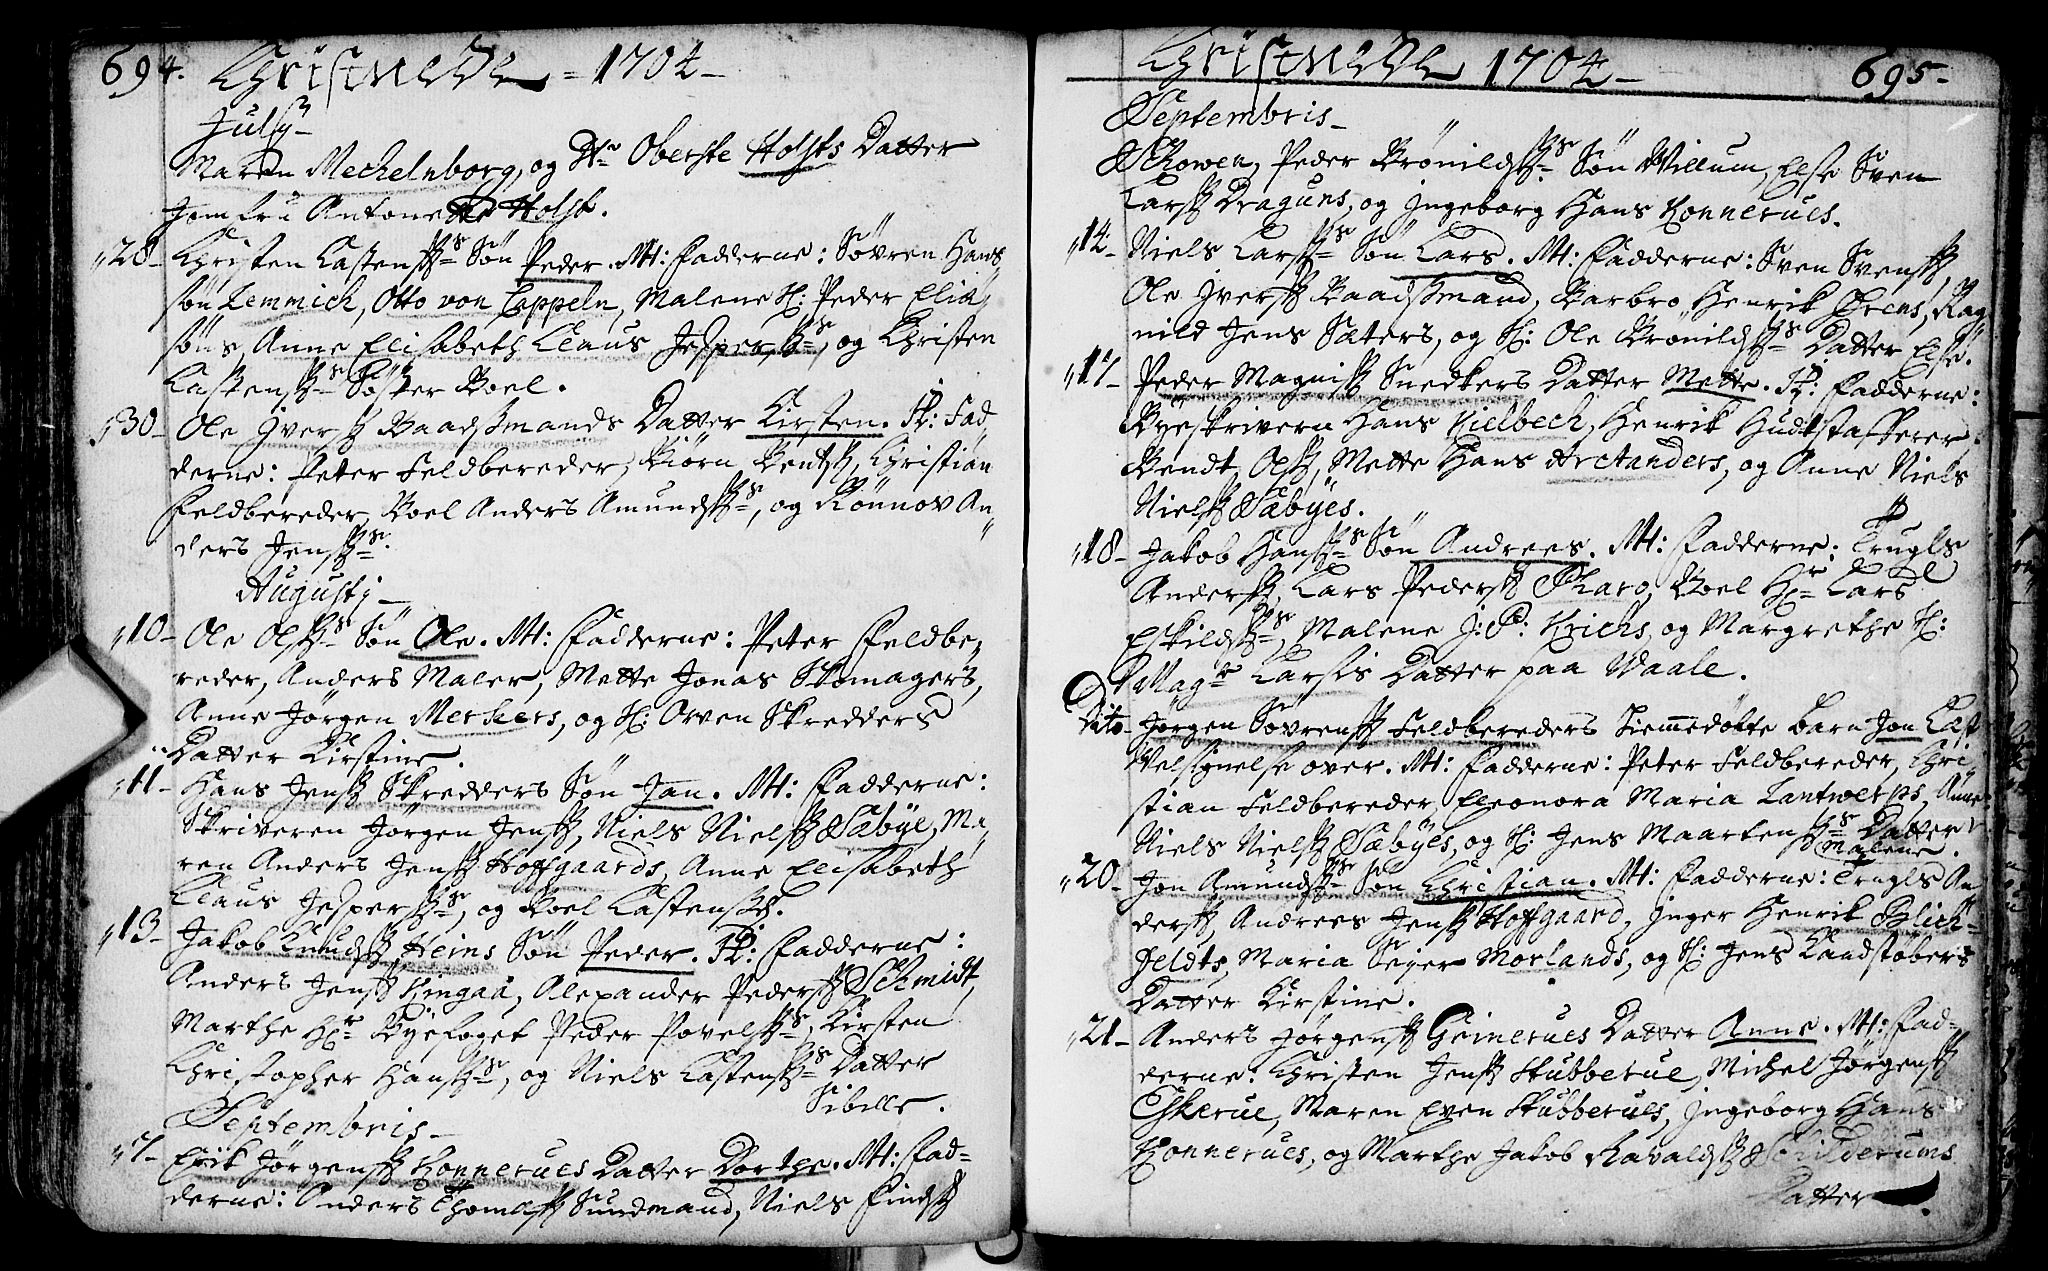 694. Christnede = 1704 -
Julij -
Maren Mechelnborg, og Hr Oberste Holsts Datter
Jomfru Antonette Holst.
28 - Christen Castenss: Søn Peder. M: Fadderne: Søvren Hans
søn Lemmich, Otto von Cappeln, Malene H: Peder Elia
søns, Anne Elisabeth Claus Jesperss:, og Christen
Castenss: Søster Boel.
30 - Ole Iverss Baadssmands Datter Kirsten. F: Fad
derne: Peter Feldbereder, Biørn Bentss, Christian
Feldbereder, Boel Anders Amundss:, og Rønnov An
ders Jenss:
Augustj -
10 - Ole Olss: Søn Ole. M: Fadderne: Peter Feldbe,
reder, Anders Maler, Mette Jonas Skomagers,
Anne Jørgen Merkers, og H: Orven Skredders
Datter Kirstine.
11 - Hans Jenss Skredders Søn Jan. M: Fadderne:
Skriveren Jørgen Jenss, Niels Nielss Sæbye, Ma,
ren Anders Jenss Hoffgaards, Anne Elisabeth
Claus Jesperss:, og Boel Castenssd.
13 - Jakob Knudss Heins Søn Peder. F: Fadderne:
Anders Jenss Kingaa, Alexander Pederss Schmidt,
Marthe Hr Byefoget Peder Povelss:, Kirsten
Christopher Hanss:, og Niels Castenss: Datter
Sibille.
Septembris -
7 - Erik Jørgenss Konnerues Datter Dorthe. M: Fad=
derne: Anders Thomass Sundmand, Niels Findss
Christnede 1704 - 695 -
Septembris -
Skowen, Peder Brønildss: Søn Willum, Else Sven
Larss Draguns, og Ingeborg Hans Konnerues.
14 - Niels Larss: Søn Lars. M: Fadderne: Sven Svenss,
Ole Iverss Baadssmand, Barbro Henrik Ørens, Rag
nild Jens Sæters, og H: Ole Brønildss: Datter Else.
17 - Peder Magniss Snedkers Datter Mette. F: Fadderne:
Byeskrivern Hans Kielbech, Henrik Hudtstafferer,
Bendt Olss, Mette Hans Arctanders, og Anne Niels
Nielss Sæbyes.
18 - Jakob Hanss: Søn Andrees. M: Fadderne: Trugls
Anderss, Lars Pederss Skaro, Boel Hr Lars
Eskildss:, Malene J: P: Krichs, og Margrethe H:
Magr Larsis Datter paa Waale.
Dito - Jørgen Søvrenss Feldbereders Hiemmedøbte Barn Jon Læst
Velsignelse over. M: Fadderne: Peter Feldbereder, Chri
stian Feldbereder, Eleonora Maria Lantwerps, Anne
Niels Nielss Sæbyes, og H: Jens Maartenss: Datter
Malene.
20 - Jon Amundss: Søn Christian. M: Fadderne: Trugls An
derss, Andrees Jenss Hoffgaard, Inger Henrik Blich=
feldts, Maria Seyer Morlands, og H: Jens Kandstøbers
Datter Kirstine.
21 - Anders Jørgenss Grinerues Datter Anne. M: Fad=
derne: Christen Jenss Stubberue, Michel Jørgenss
Eskerue, Maren Even Stubberues, Ingeborg Hans
Konnerues, og Marthe Jakob Ravaldss Skilderums
Datter.